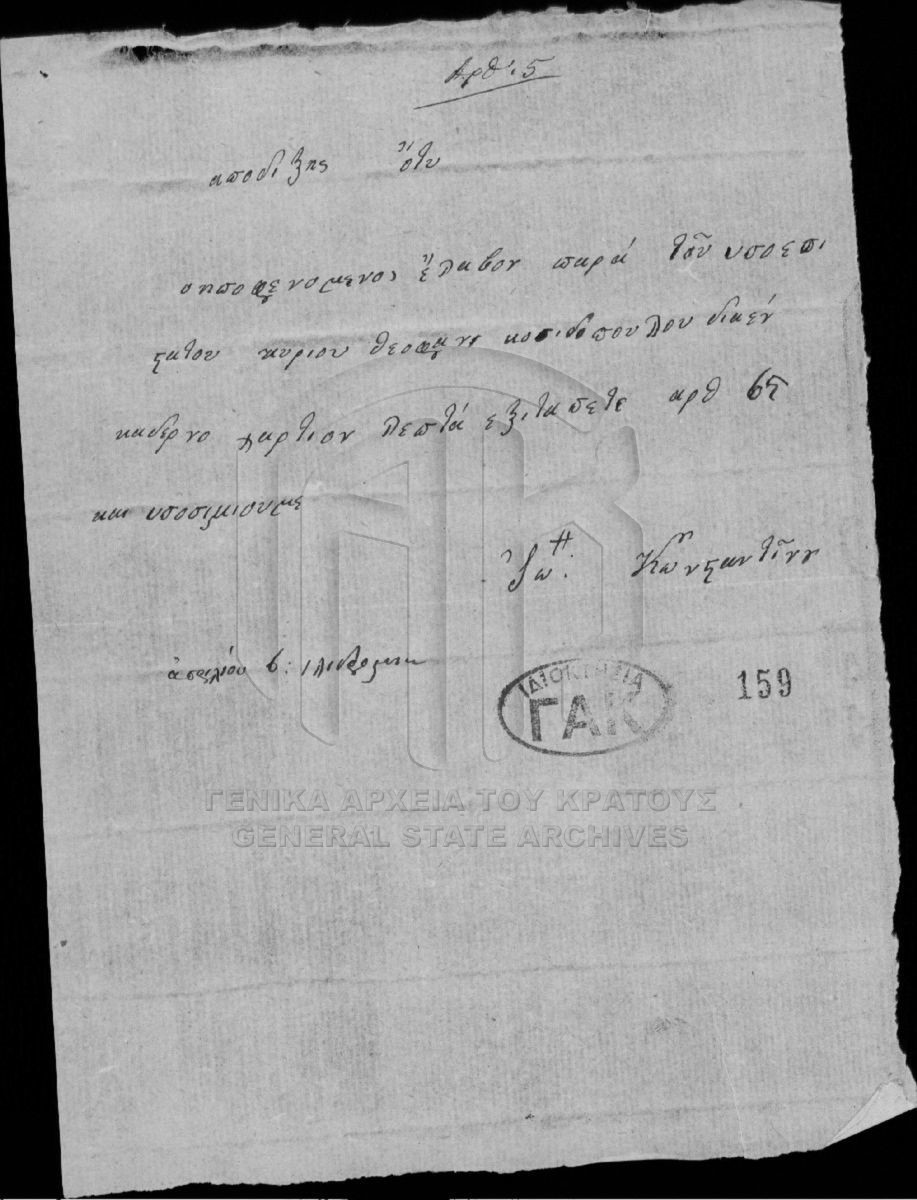 Αρθ: 5
αποδιξης ὅτυ
οηποφενομενος ἔλαβον παρά τοῦ υποεπι
ςατου κυριου θεοφανι κοσιδοπουλου διαέν
καδερνο χαρτιον λεπτά εξιταπετε αρθ 65
και υποσιμιουμε
Ἰω: Κωνςαντῖνου
159
ΙΔΙΟΚΤΗΣΙΑ
ΓΑΚ
ΓΕΝΙΚΑ ΑΡΧΕΙΑ ΤΟΥ ΚΡΑΤΟΥΣ
GENERAL STATE ARCHIVES